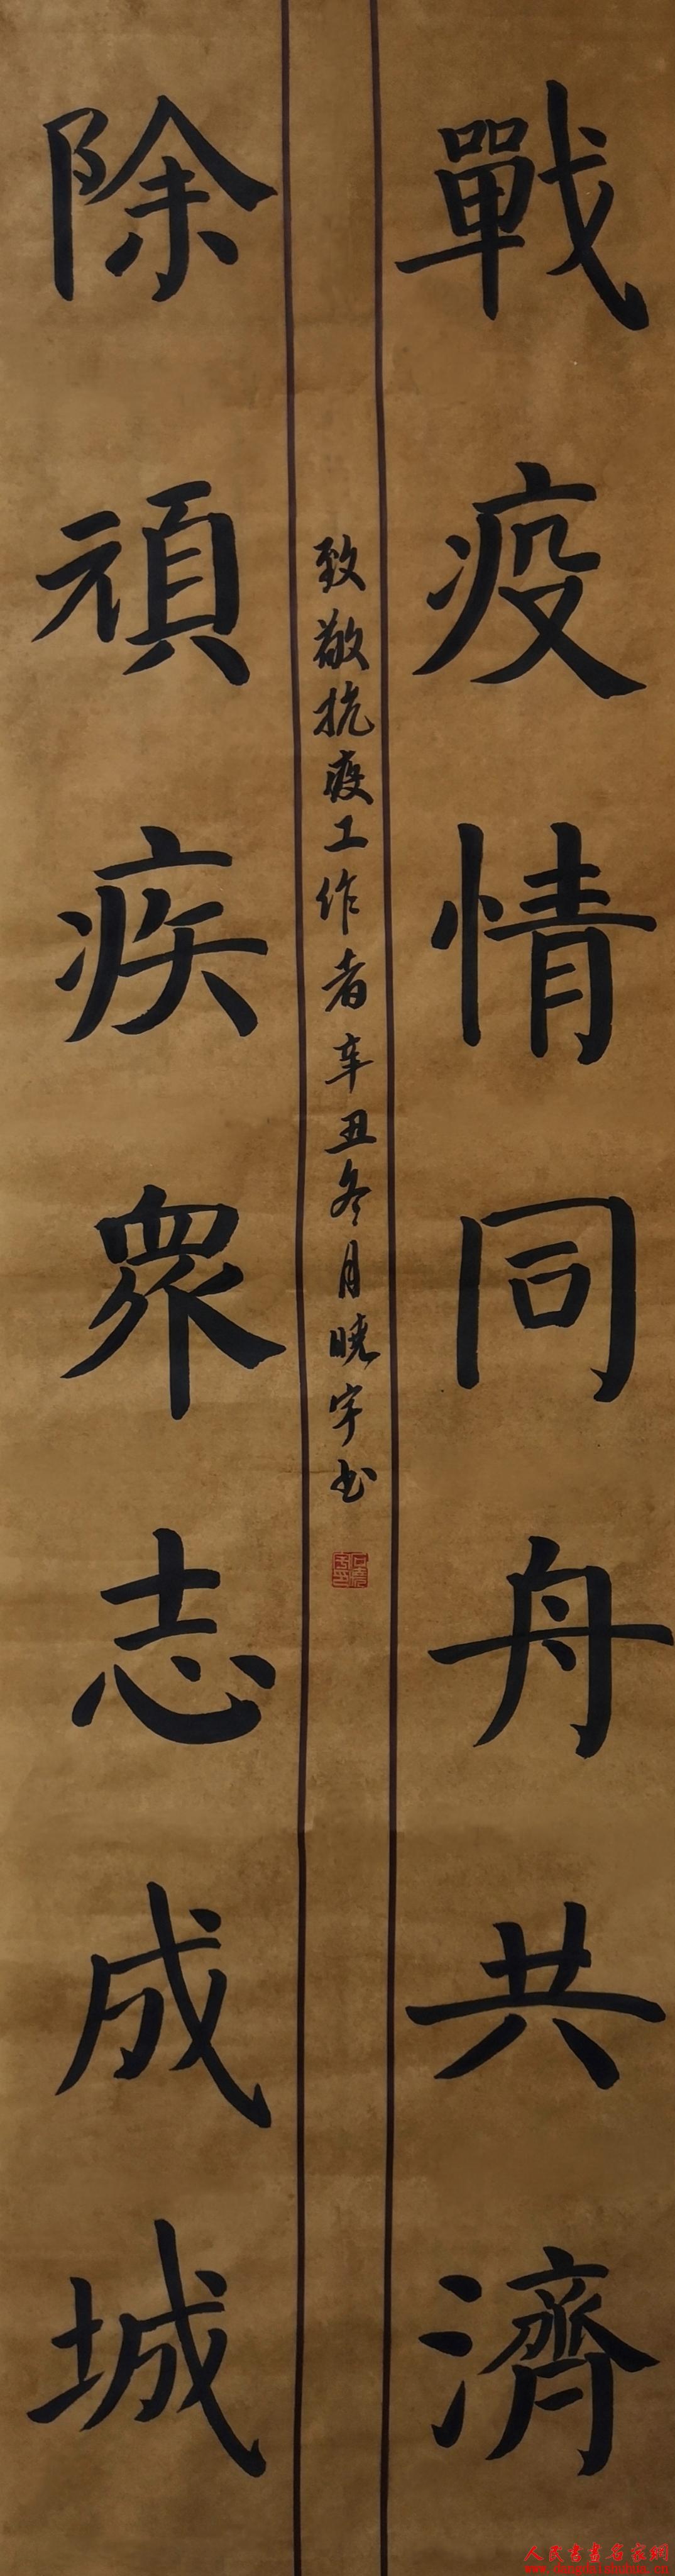 戰疫情同舟共濟
致敬抗疫工作者辛丑冬月曉宇书
除頑疾眾志成城
人民書畫名家網